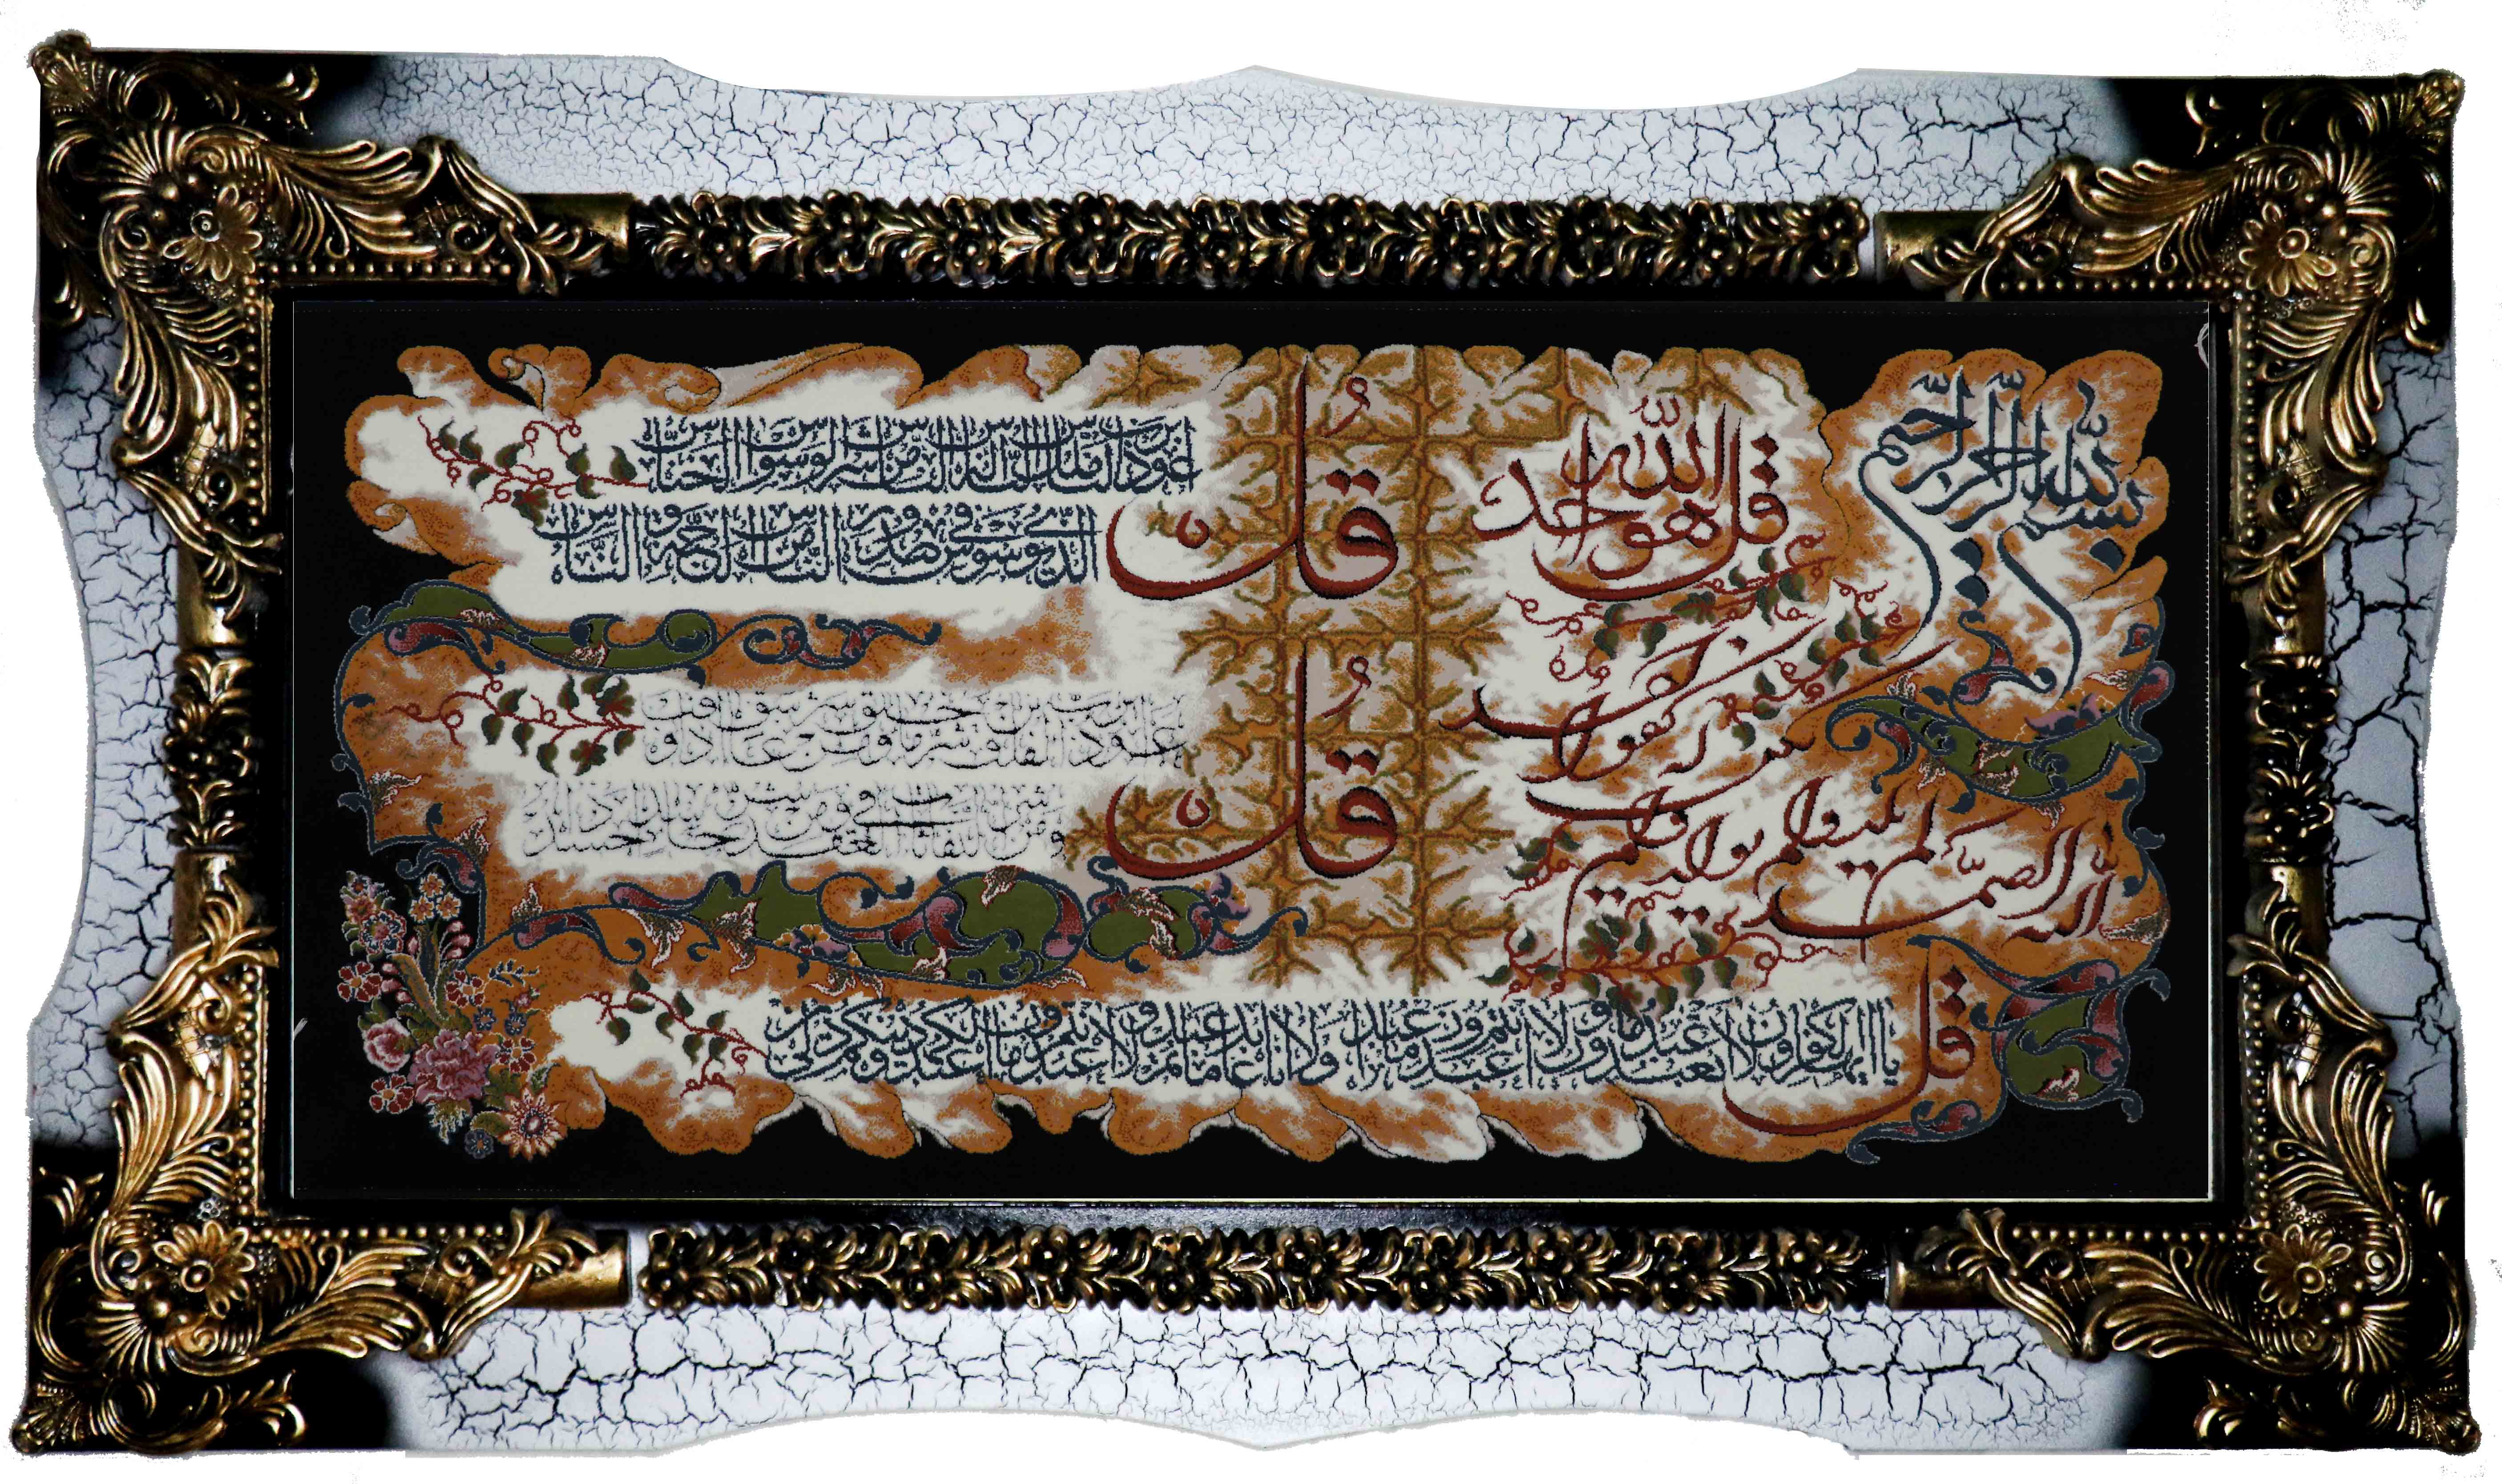 بسم الله الرحمن الرحیم
قل هو الله احد
الله الصمد لم یلد و لم یولد و لم یکن له کفوا احد
قل اعوذ برب الناس ملک الناس اله الناس من شر الوسواس الخناس
الذی یوسوس فی صدور الناس من الجنة و الناس
قل اعوذ برب الفلق من شر ما خلق و من شر غاسق اذا وقب
و من شر النفاثات فی العقد و من شر حاسد اذا حسد
قل یا ایها الکافرون لا اعبد ما تعبدون و لا انتم عابدون ما اعبد و لا انا عابد ما عبدتم و لا انتم عابدون ما اعبد لکم دینکم و لی دین